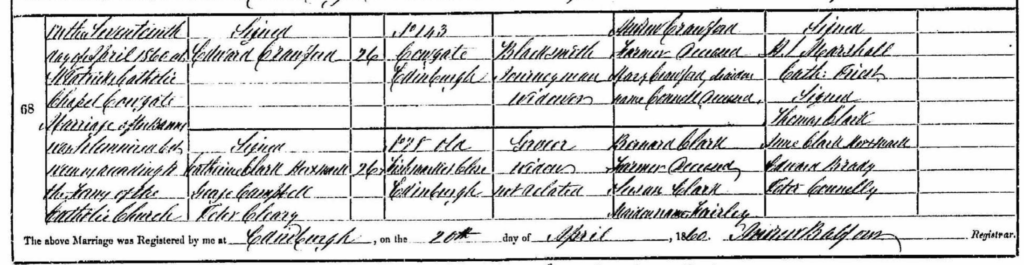 68
on the Seventeenth
day of April 1860 at
St Patricks Catholic
Chapel Cowgate
Marriage after Banns
was Solemnized bet
ween us according to
the Forms of the
Catholic Church
Signed
Edward Crawford
Signed
Catherine Clark Her X mark
George Campbell
Peter Cleary
26
26
No 143
Cowgate
Edinburgh
No 78 Old
Fishmarket Close
Edinburgh
Blacksmith
Journeyman
Widower
Grocer
Widow
not related
Andrew Crawford
Farmer Deceased
Mary Crawford, maiden
name Connell Deceased,
Bernard Clark
Farmer Deceased
Susan Clark
Maiden name Fairley
Signed
Marshall
Cath: Priest
Signed
Thomas Clark
Anne Clark Her X mark
Edward Brady
Peter Connelly
The above Marriage was Registered by me at Edinburgh, on the 20th day of April, 1860. Andrew Balfour Registrar.